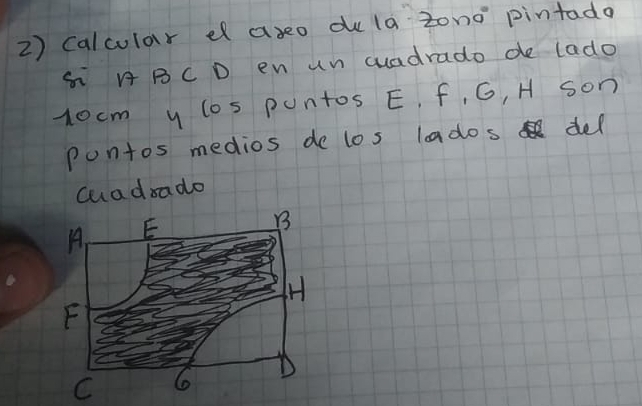 2) Calcular el areo de la zona pintada
si A B C D en un cuadrado de lado
10cm y los puntos E, f, G, H son
puntos medios de los lados del
cuadrado
A E B
F H
C G D